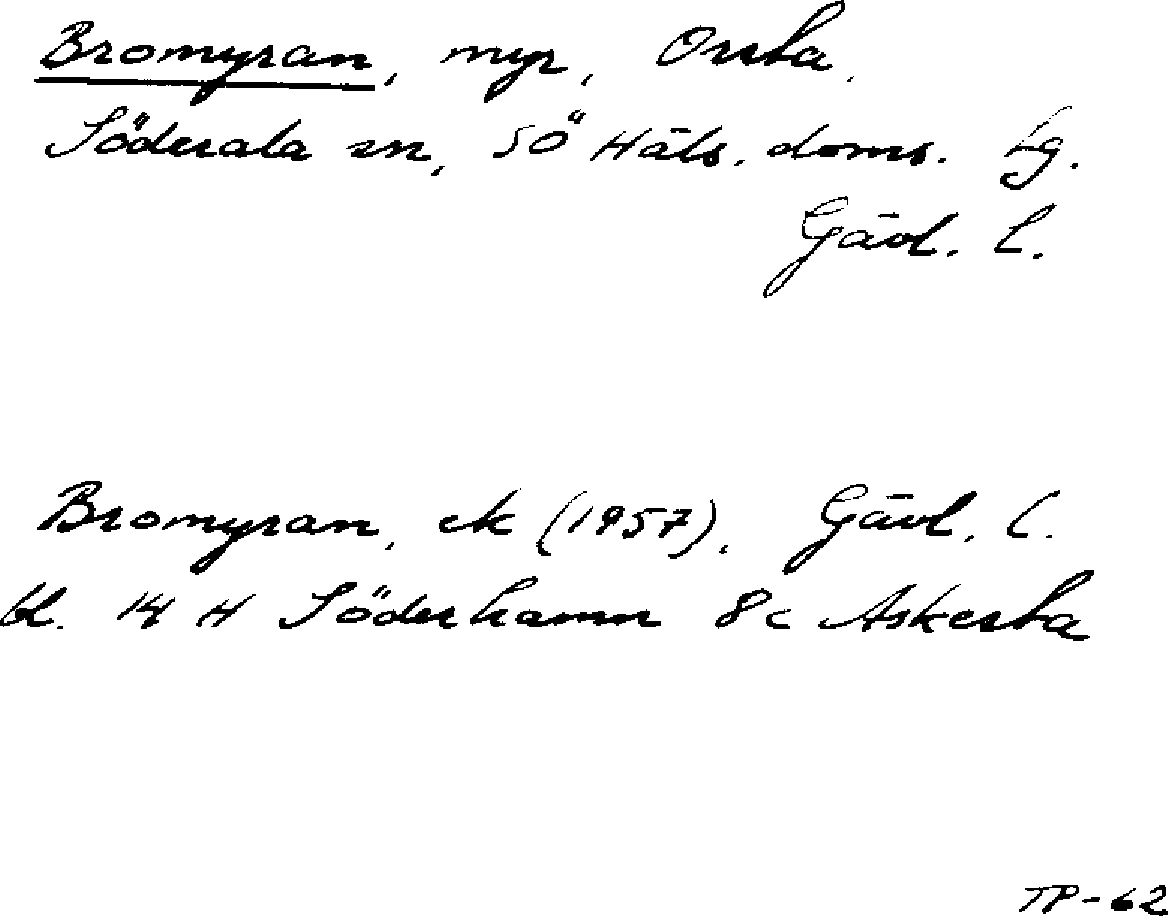 Bromyran, myr, Orsta,
Söderala sn, SÖ Häls. doms. Lg.
Gävl. l.
Bromyran, ek (1957), Gävl. l.
bl. 14 H Söderhamn 8c Askesta
TP-62